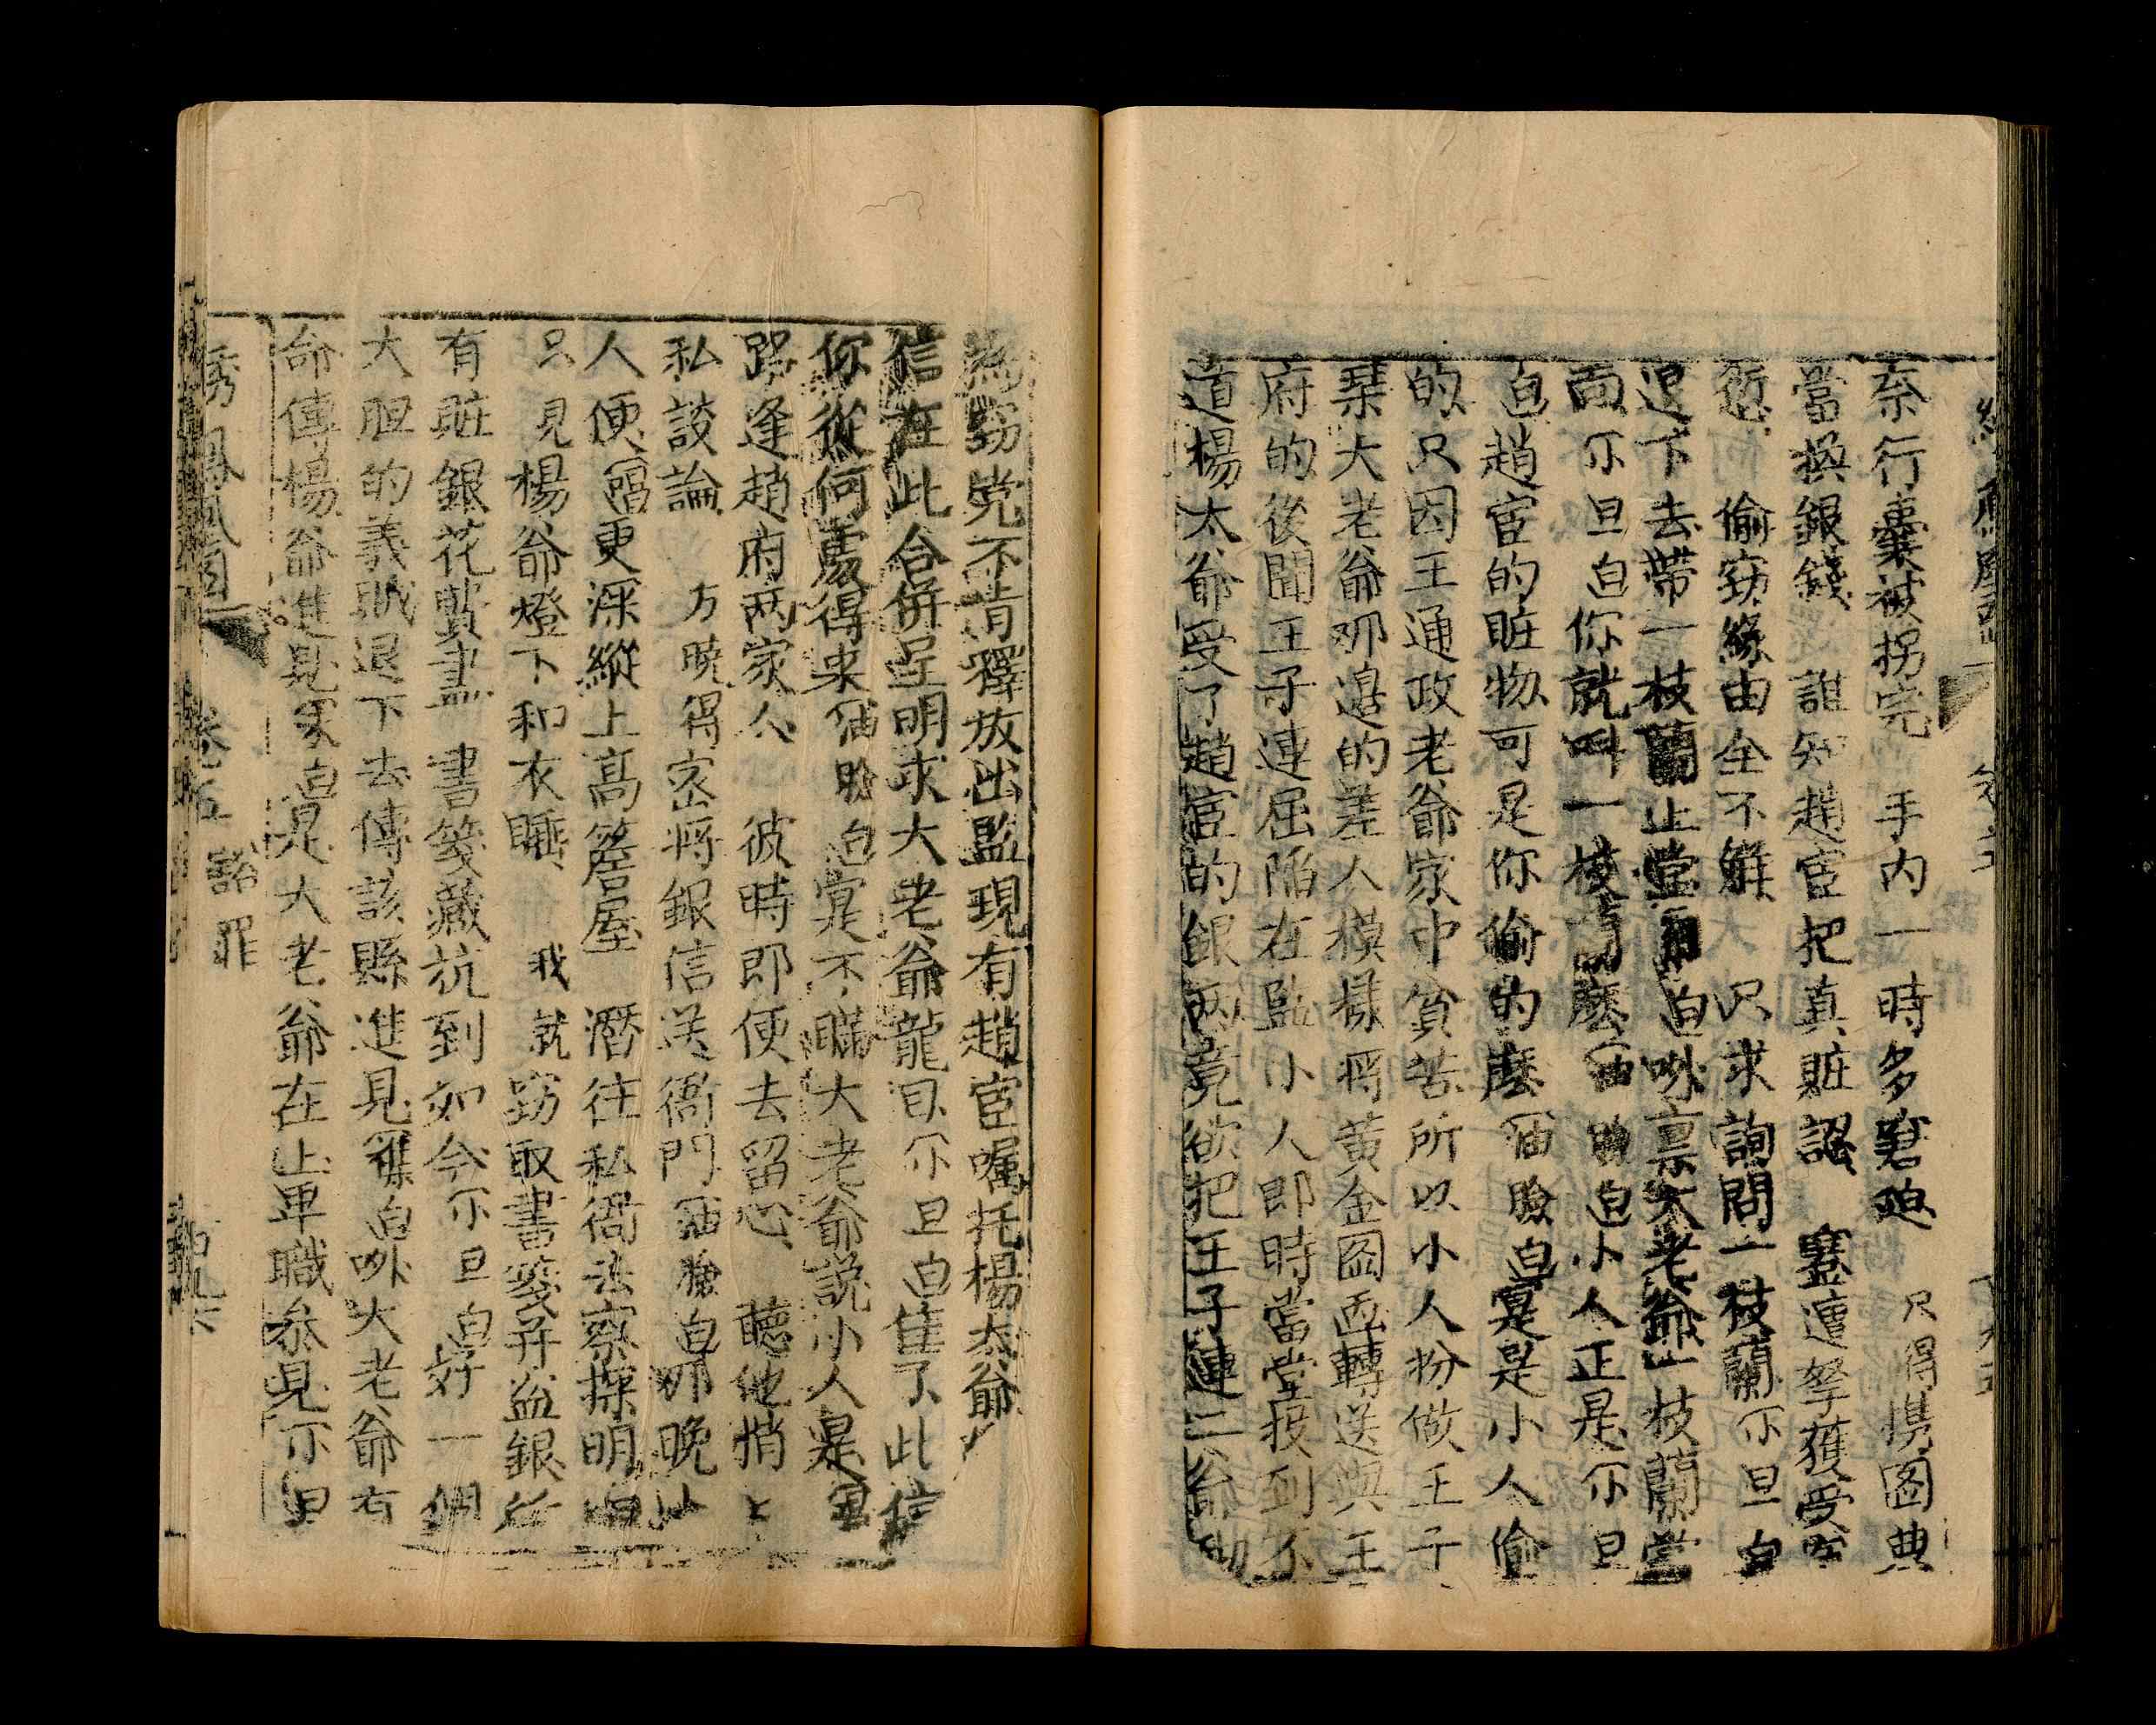 奈行囊被拐完　手内一時多窘迫　只得携圖典
當換銀錢　誰知趙宦把真賍認　寃遭拏獲受牢
　偷竊緣由全不觧　只求詢問一枝蘭　尔旦白
退下去帶一枝蘭上堂　白咏禀大老爺一枝蘭當
面尔旦白你就叫一枝蘭麽　白小人正是尔旦
白趙宦的賍物可是你偷的麽　臉白寔是小人偷
的只因王通政老爺家中貧苦所以小人扮做王子
琹大老爺那邉的差人模樣将黄金圖画轉送與王
府的後聞王子連屈陷在監小人即時當堂投到不
道楊太爺受了趙宦的銀两竟欲把王子連二命
為竊党不肯釋放出監現有趙宦嘱托楊太爺
信在此合併呈明求大老爺龍目尔旦白隹了此信
你從何處得来　臉白寔不瞞大老爺説小人是
路逢趙府两家人　彼時即便去留心　聴他悄〻
私談論　方暁得密将銀信送衙門　臉白那晚
人便　更深縱上高簷屋　濳往私衙去察探明
只見楊爺燈下和衣睡　我就竊取書箋并盗銀
有賍銀花費盡　書箋藏抗到如今尔旦白好一個
大胆的義賊退下去傳該縣進見　白咏大老爺有
命傳楊爺進見　白是大老爺在上卑職叅見尔旦
綉　鳳凰圖　卷五　詒罪